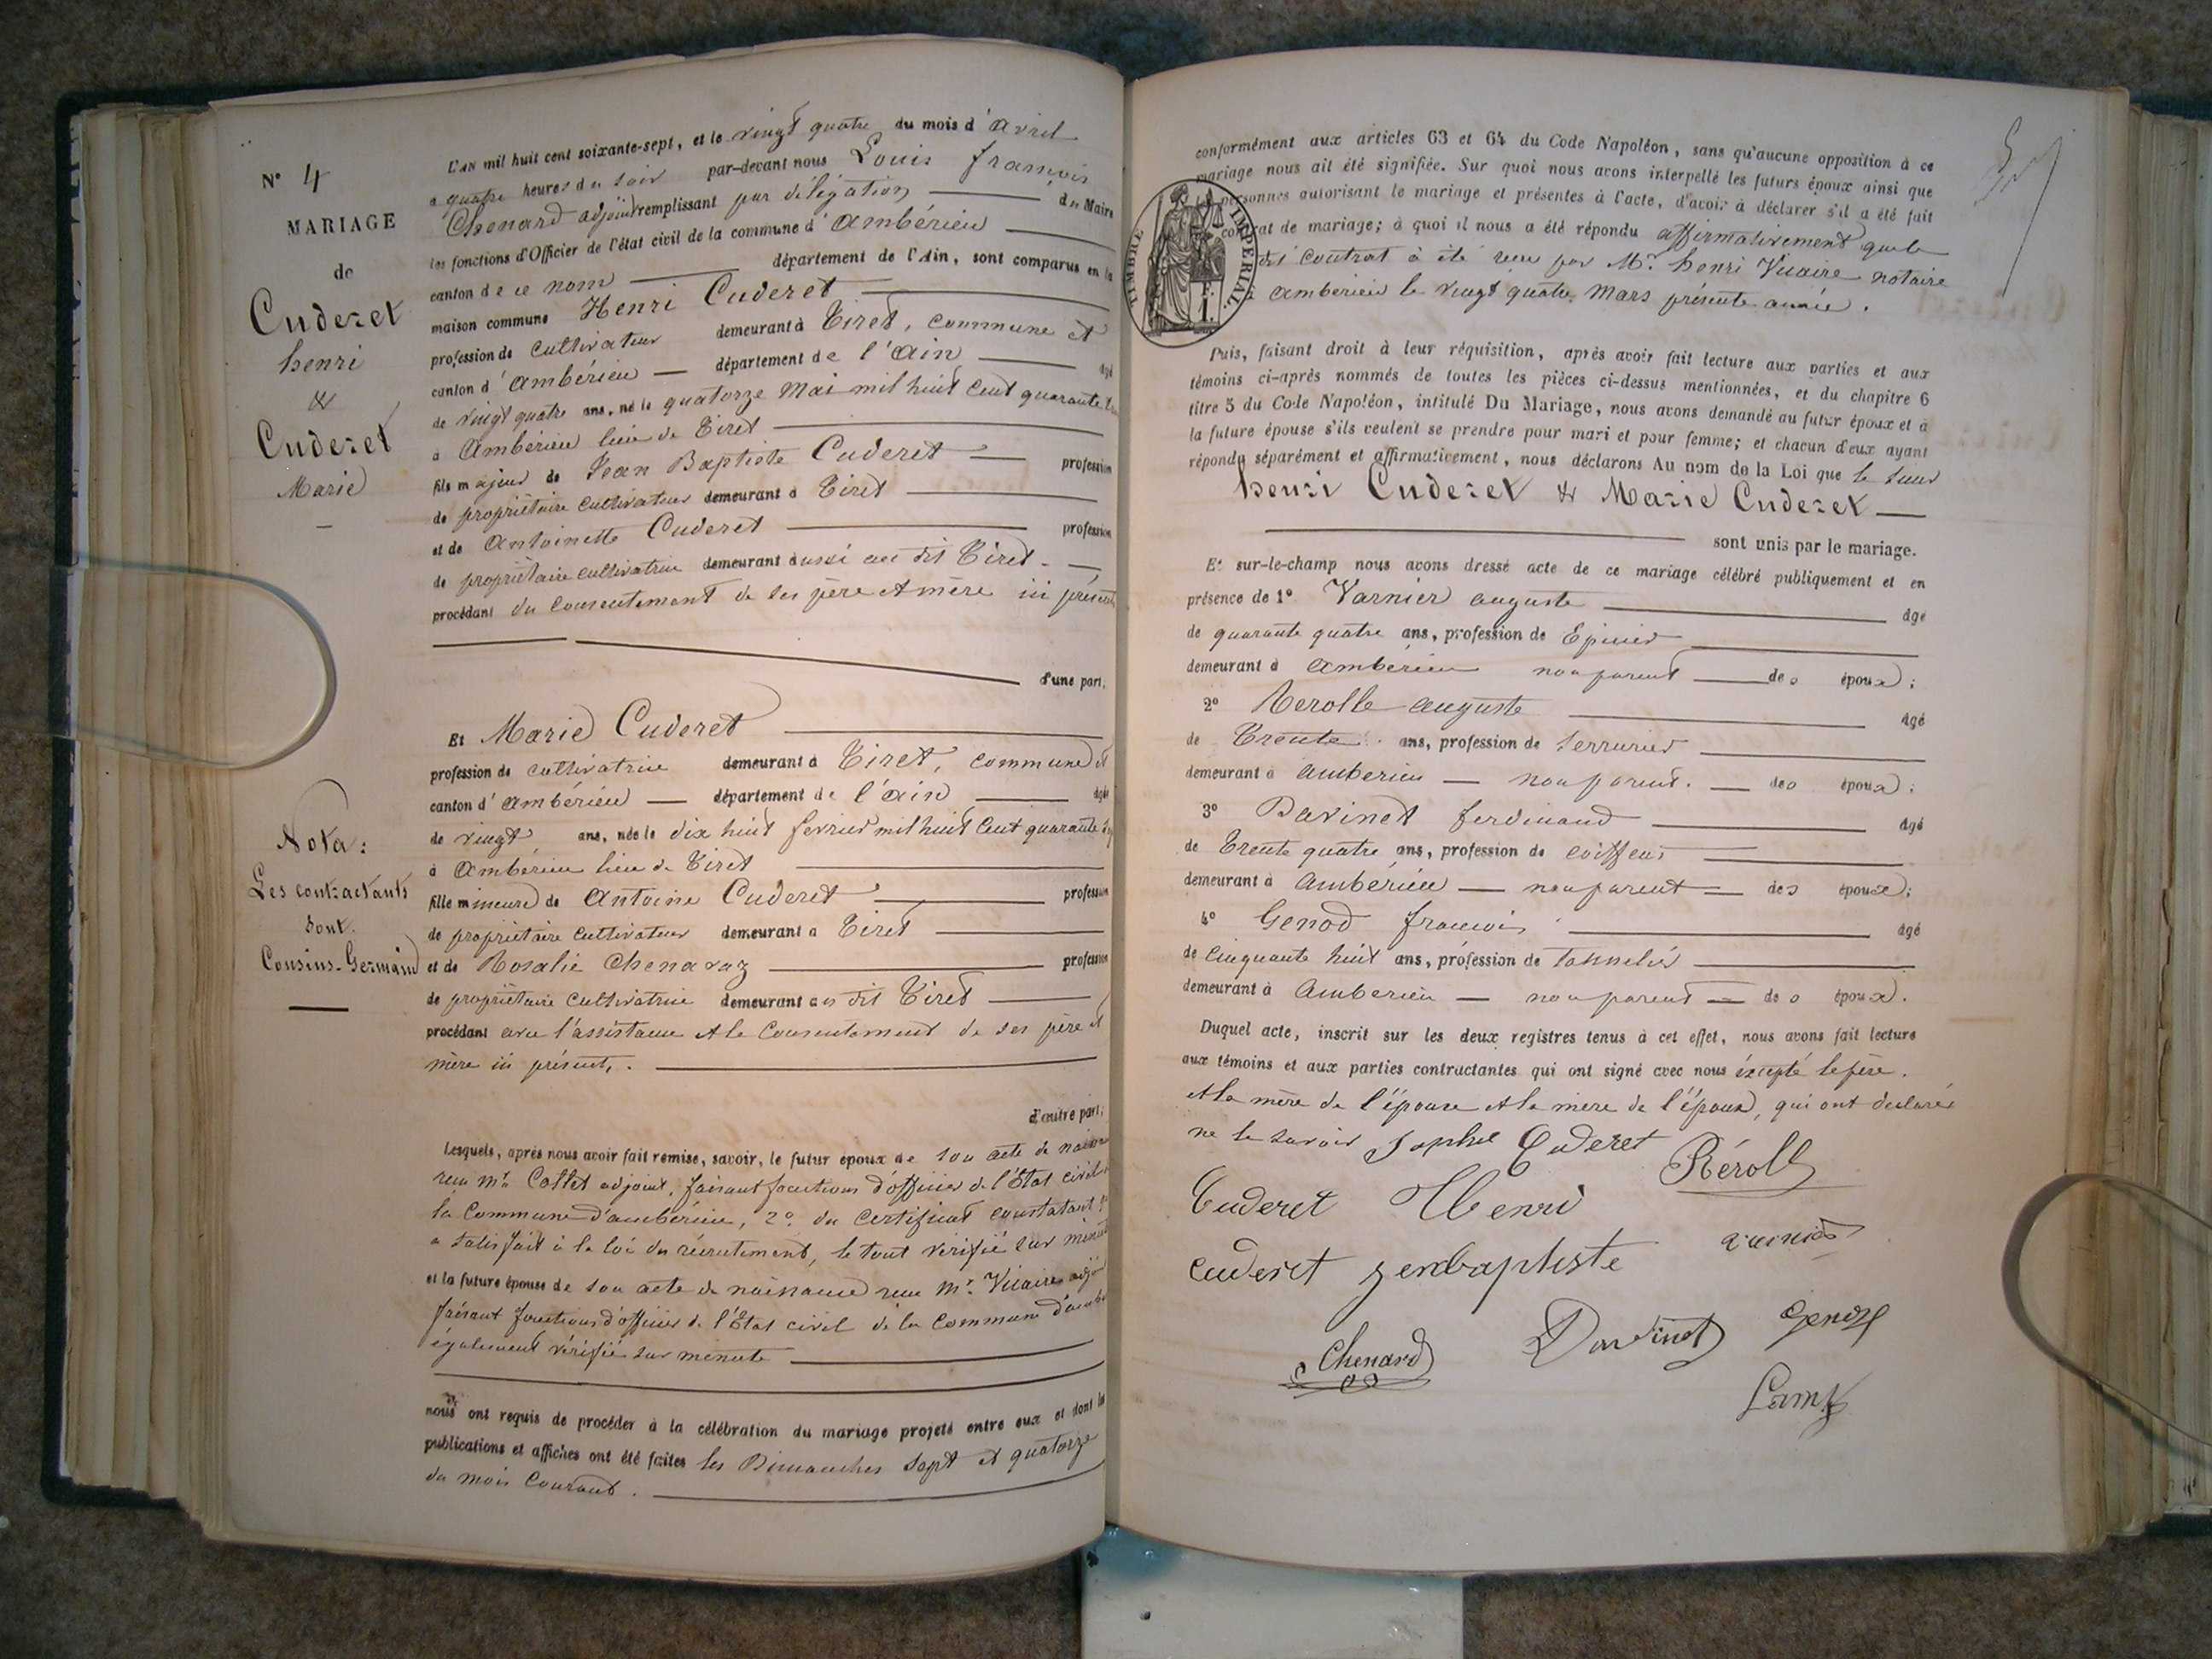 N° 4
MARIAGE
de
Cuderet
henri
&
Cuderet
Marie
Nota:
Les contractants
sont
Cousins-Germains
L'AN mil huit cent soixante-sept, et le vingt quatre du mois d'avril
a quatre heures du soir par-devant nous Louis françois
Chenard adjoint remplissant par délégation du Maire
les fonctions d'Officier de l'état civil de la commune d'ambérieu
canton de ce nom département de l'Ain, sont comparus en la
maison commune Henri Cuderet
profession de cultivateur demeurant à Tiret, commune et
canton d'ambérieu département de l'ain âgé
de vingt quatre ans, né le quatorze Mai mil huit cent quarante
à Ambérieu lieu de Tiret
fils majeur de Jean Baptiste Cuderet profession
de propriétaire cultivateur demeurant à Tiret
et de Antoinette Cuderet profession
de propriétaire cultivatrice demeurant aussi au dit Tiret
procédant du consentement de ses père et mère ici présents
d'une part,
Et Marie Cuderet
profession de cultivatrice demeurant à Tiret, commune et
canton d'ambérieu département de l'ain âgée
de vingt ans, née le dix huit fevrier mil huit cent quarante
à Ambérieu lieu de Tiret
fille mineure de Antoine Cuderet profession
de propriétaire cultivateur demeurant a Tiret
et de Rosalie Chenavaz profession
de propriétaire cultivatrice demeurant au dit Tiret
procédant avec l'assistance et le consentement de ses père et
mère ici présents.
d'autre part;
Lesquels, après nous avoir fait remise, savoir, le futur époux de son acte de
reçu Mr Collet adjoint, faisant fonctions d'officier de l'État civil
la Commune d'ambérieu, 2° du certificat constatant
a satisfait à la loi du récrutement, le tout vérifié sur minute
et la future épouse de son acte de naissance reçu Mr. Vicaire
faisant fonctions d'officier de l'État civil de la Commune
également vérifié sur minute
nous ont requis de procéder à la célébration du mariage projeté entre eux et dont les
publications et affiches ont été faites les Dimanches sept et quatorze
du mois courant.
conformément aux articles 63 et 64 du Code Napoléon, sans qu'aucune opposition à ce
mariage nous ait été signifiée. Sur quoi nous avons interpellé les futurs époux ainsi que
personnes autorisant le mariage et présentes à l'acte, d'avoir à déclarer s'il a été fait
contrat de mariage; à quoi il nous a été répondu affirmativement que le
dit contrat à été reçu par Mr. henri Vicaire notaire
à ambérieu le vingt quatre Mars présente année.
TIMBRE IMPERIAL
1 F.
Puis, faisant droit à leur réquisition, après avoir fait lecture aux parties et aux
témoins ci-après nommés de toutes les pièces ci-dessus mentionnées, et du chapitre 6
titre 5 du Code Napoléon, intitulé Du Mariage, nous avons demandé au futur époux et à
la future épouse s'ils veulent se prendre pour mari et pour femme; et chacun d'eux ayant
répondu séparément et affirmativement, nous déclarons Au nom de la Loi que le sieur
henri Cuderet & Marie Cuderet
sont unis par le mariage.
Et sur-le-champ nous avons dressé acte de ce mariage célébré publiquement et en
présence de 1° Varnier auguste âgé
de quarante quatre ans, profession de Epicier
demeurant à ambérieu non parent des époux;
2° Rerolle auguste âgé
de Trente ans, profession de serrurier
demeurant à ambérieu non parent. des époux;
3° Davinet ferdinand âgé
de Trente quatre ans, profession de coiffeur
demeurant à ambérieu non parent des époux;
4° Genod françois âgé
de cinquante huit ans, profession de tonnelier
demeurant à Ambérieu non parent des époux.
Duquel acte, inscrit sur les deux registres tenus à cet effet, nous avons fait lecture
aux témoins et aux parties contractantes qui ont signé avec nous éxcepté le père.
et la mère de l'épouse et la mère de l'époux, qui ont declarés
ne le savoir Sophie Cuderet
Rérolle
Cuderet Henri
varnier
cuderet jenbaptiste
Davinet
Genod
Chenard